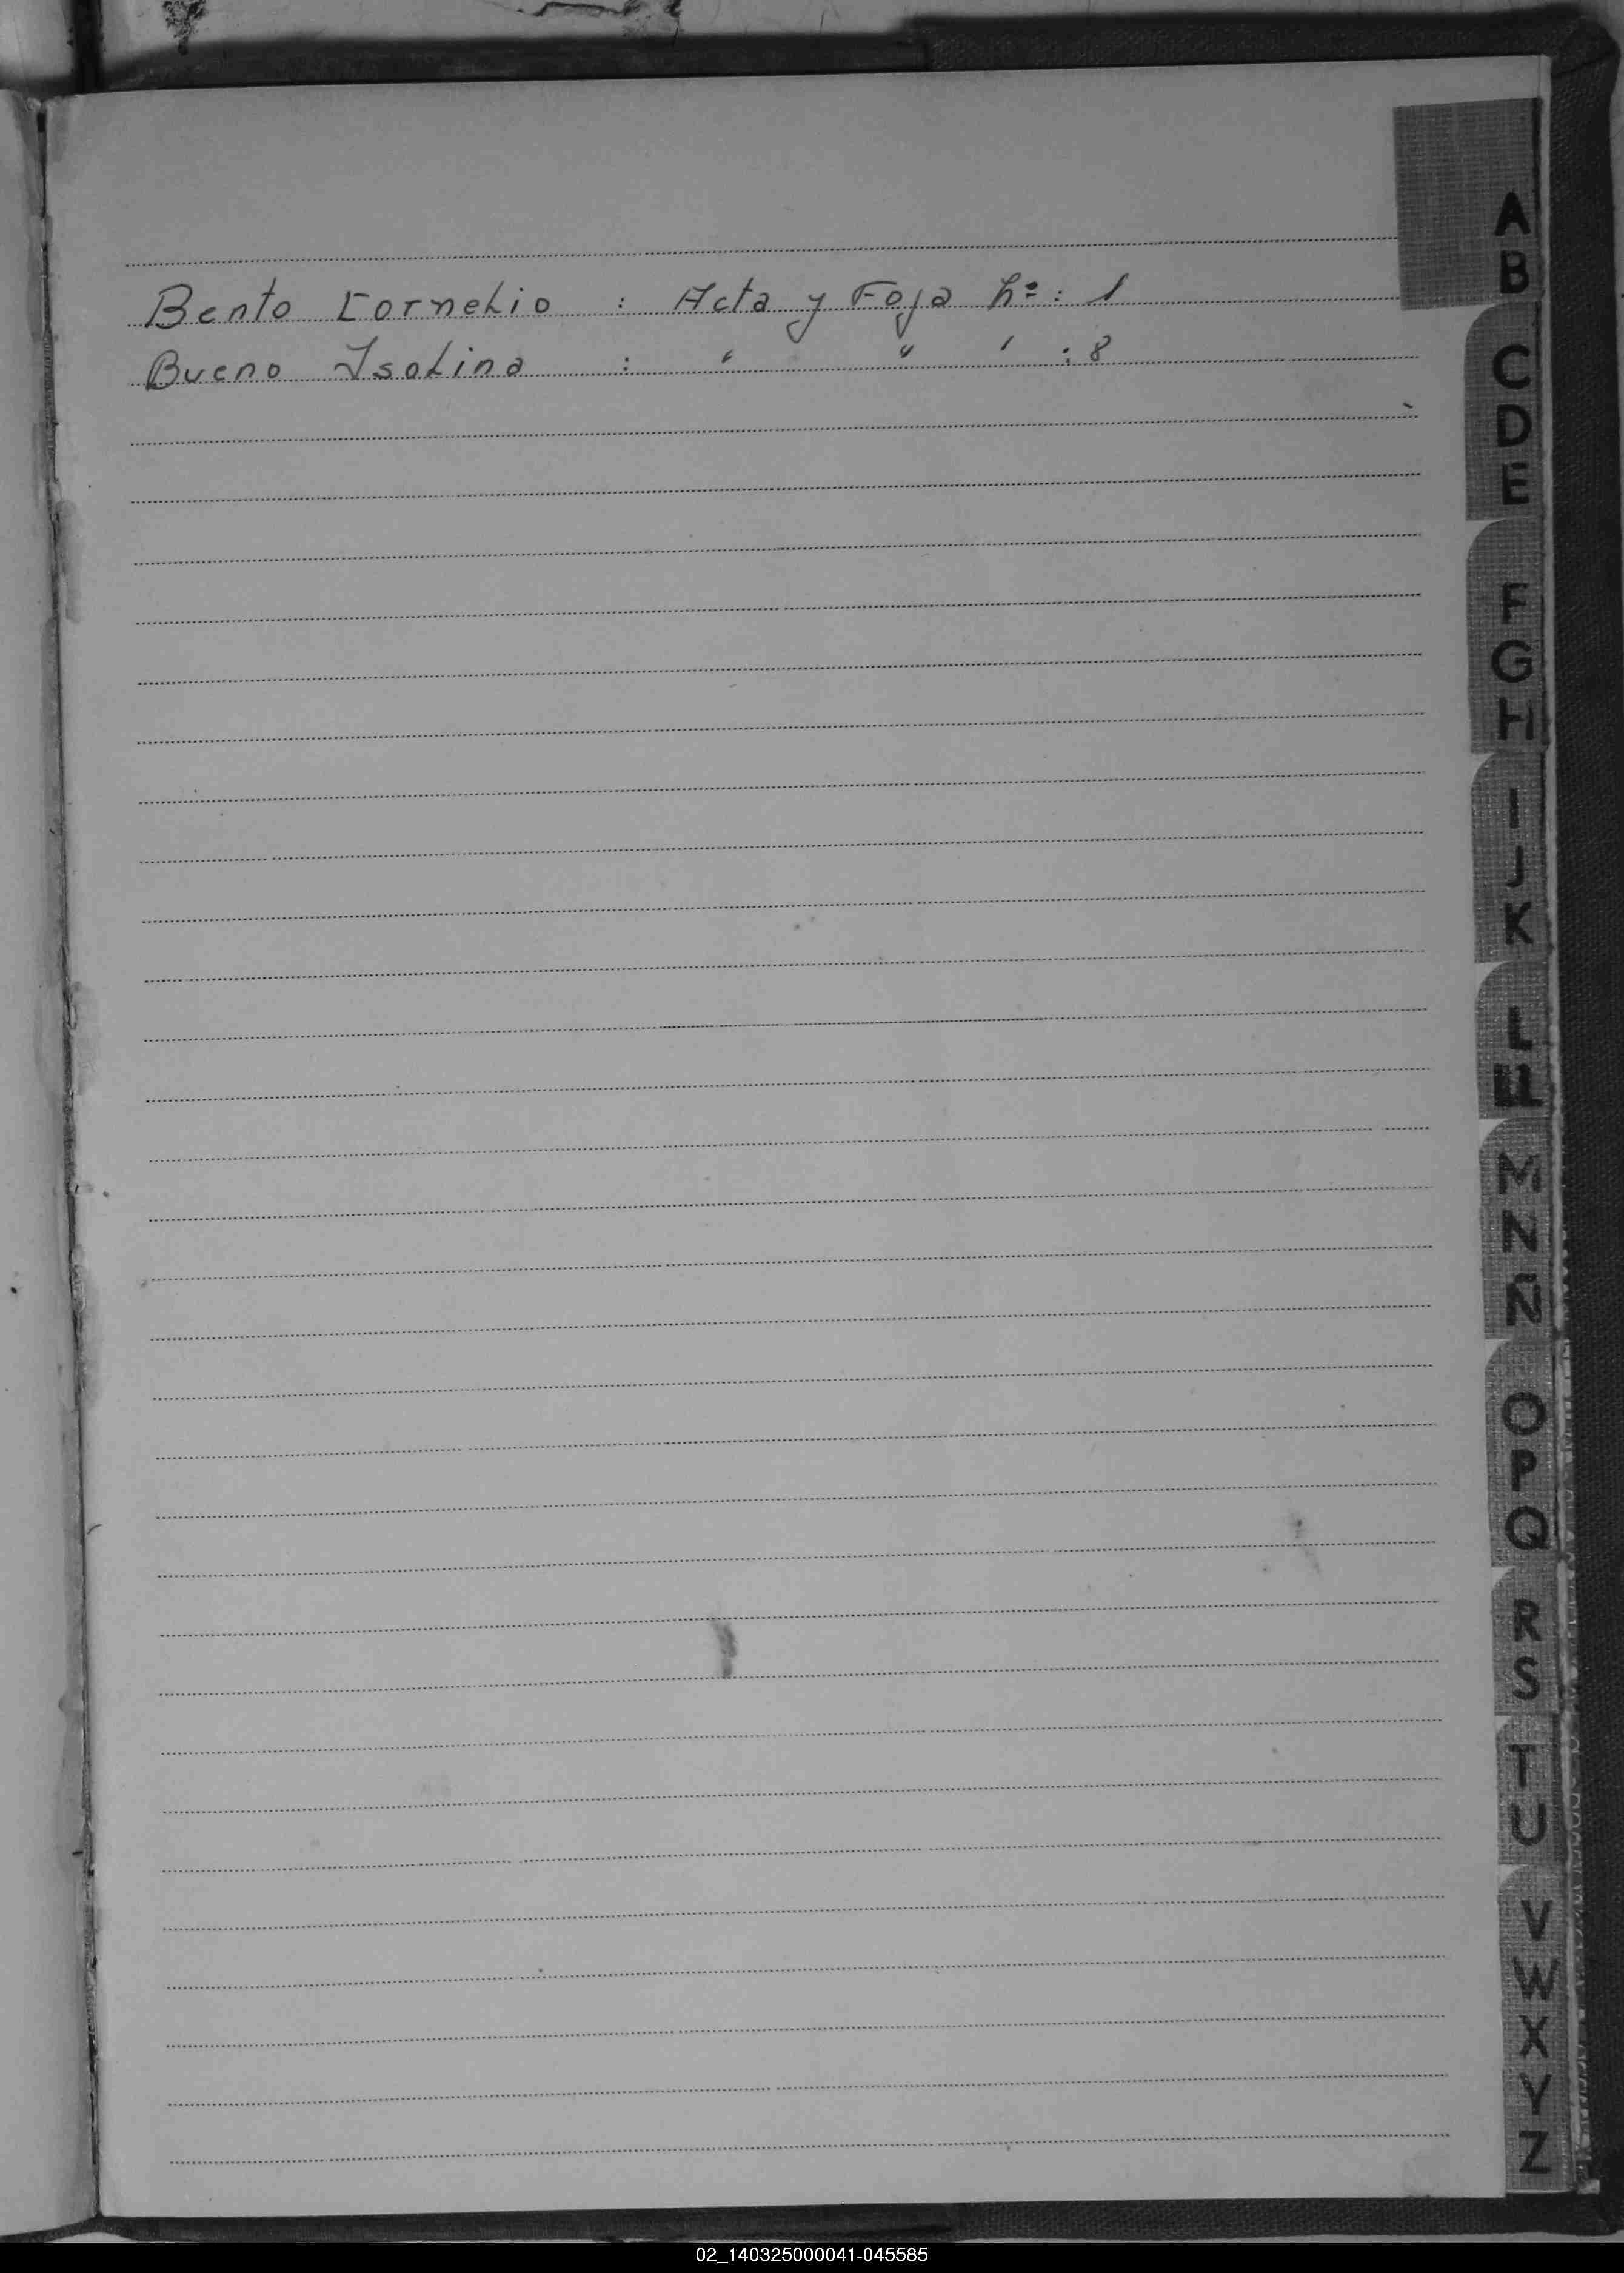 Bento Cornelio : Acta y Foja nº : 1
Bueno Isolina : " " " : 8
A
B
C
D
E
F
G
H
I
J
K
L
LL
M
N
Ñ
O
P
Q
R
S
T
U
V
W
X
Y
Z
02_140325000041-045585